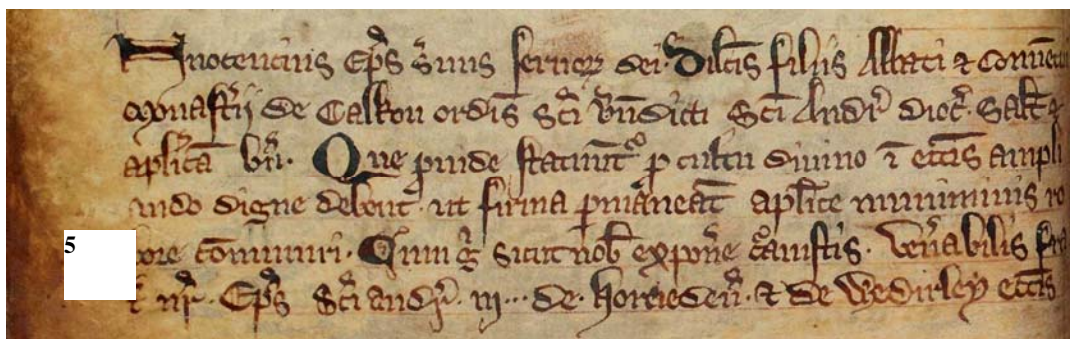 Innotencius Ep̄s S̄uus seruoꝝ dei. Dilc̄is filiis Abbati ⁊ Conuentui
monastẽij de Calkou ordīs Sc̄i Bn̄dicti Sc̄i Andr̄ dioc̄. Salt̄ ⁊
aplicā bn̄. Que ꝓuide statuūt͛ ꝓ cultu diuino ī ecc̄is ampli
ando digne debent. ut firma ꝑmaneāt aplīce muniminis ro
5 bore cōmuniri. Cum g̃ sicut nob̄ expone c᷑auistis. Ven̄abilis fra
t̄ nr̄. Ep̄s Sc̄i andr̄. in... de. horuedeñ. ⁊ de Wedirley ecc̄is